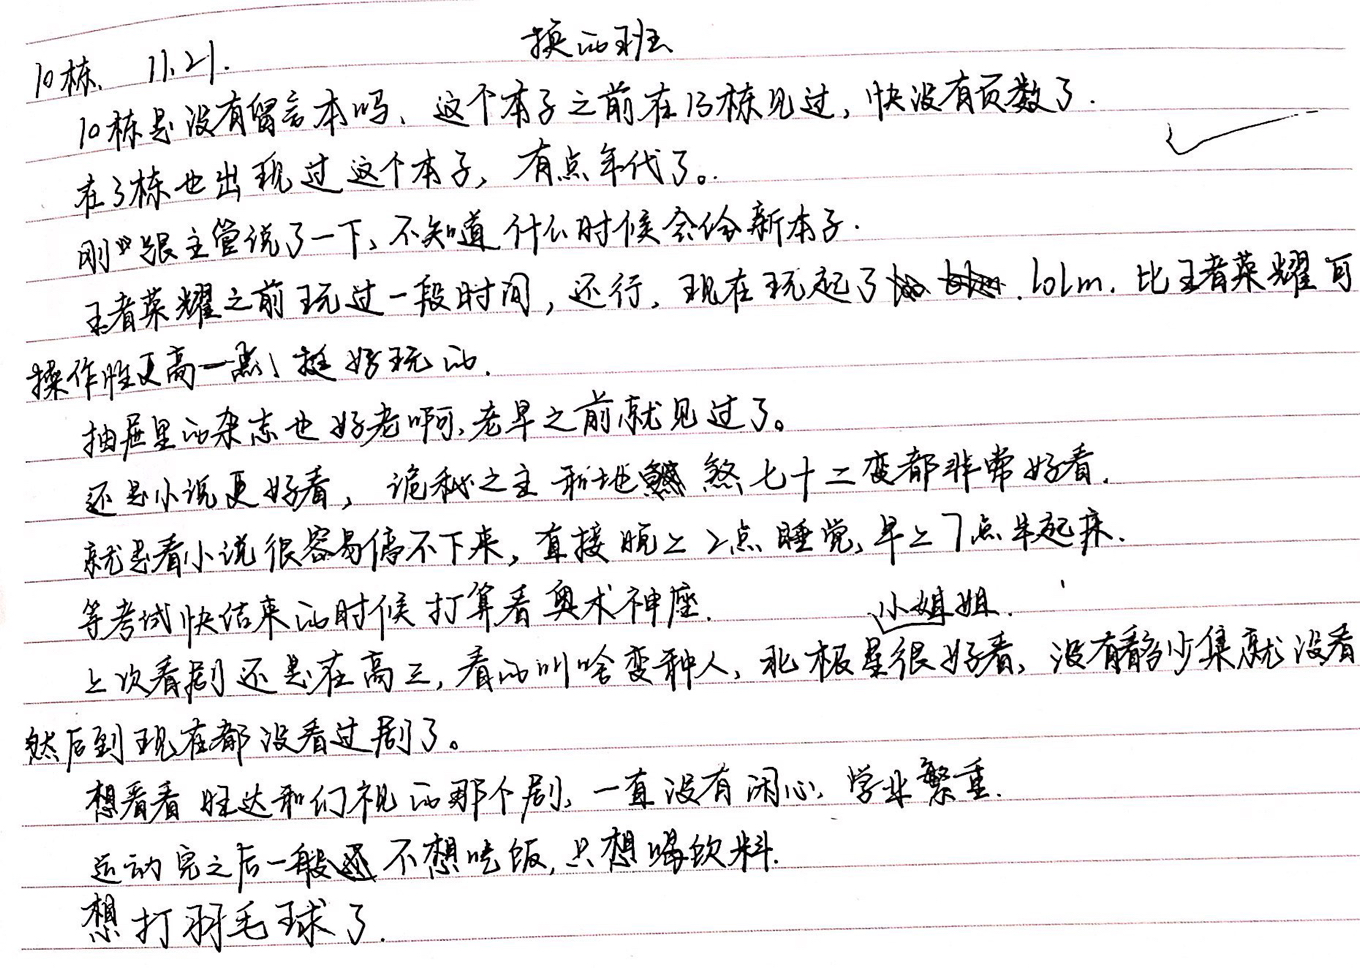 换的班
10栋、 11.21.
10栋是没有留言本吗、这个本子之前在13栋见过,快没有页数了.
在3栋也出现过这个本子,有点年代了。
刚跟主管说了一下、不知道什么时候会给新本子.
王者荣耀之前玩过一段时间,还行.现在玩起了 lolm.比王者荣耀可
操作性更高一点、挺好玩的.
抽屉里的杂志也好老啊,老早之前就见过了。
还是小说更好看, 诡秘之主和地煞七十二变都非常好看.
就是看小说很容易停不下来,直接晚上2点睡觉,早上7点半起床.
等考试快结束的时候打算看奥术神座.
小姐姐.
上次看剧还是在高三,看的叫啥变种人,北极星很好看,没有看多少集就没看
然后到现在都没看过剧了。
想看看旺达和幻视的那个剧,一直没有闲心,学业繁重.
运动完之后一般不想吃饭,只想喝饮料.
想打羽毛球了.